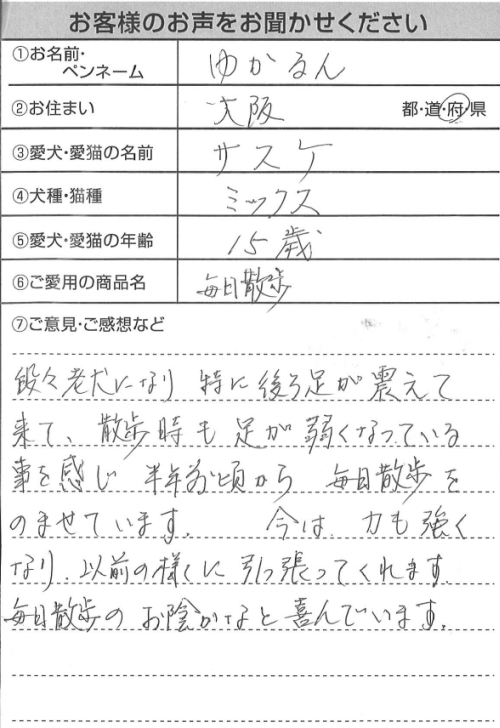 お客様のお声をお聞かせください
①お名前・ペンネーム ゆかるん
②お住まい 大阪 都・道・府・県
③愛犬・愛猫の名前 サスケ
④犬種・猫種 ミックス
⑤愛犬・愛猫の年齢 15歳
⑥ご愛用の商品名 毎日散歩
⑦ご意見・ご感想など
段々老犬になり 特に後ろ足が震えて
来て、散歩時も足が弱くなっている
事を感じ 半年前頃から 毎日散歩を
のませています。 今は力も強く
なり、以前の様に引っ張ってくれます。
毎日散歩のお陰かなと喜んでいます。